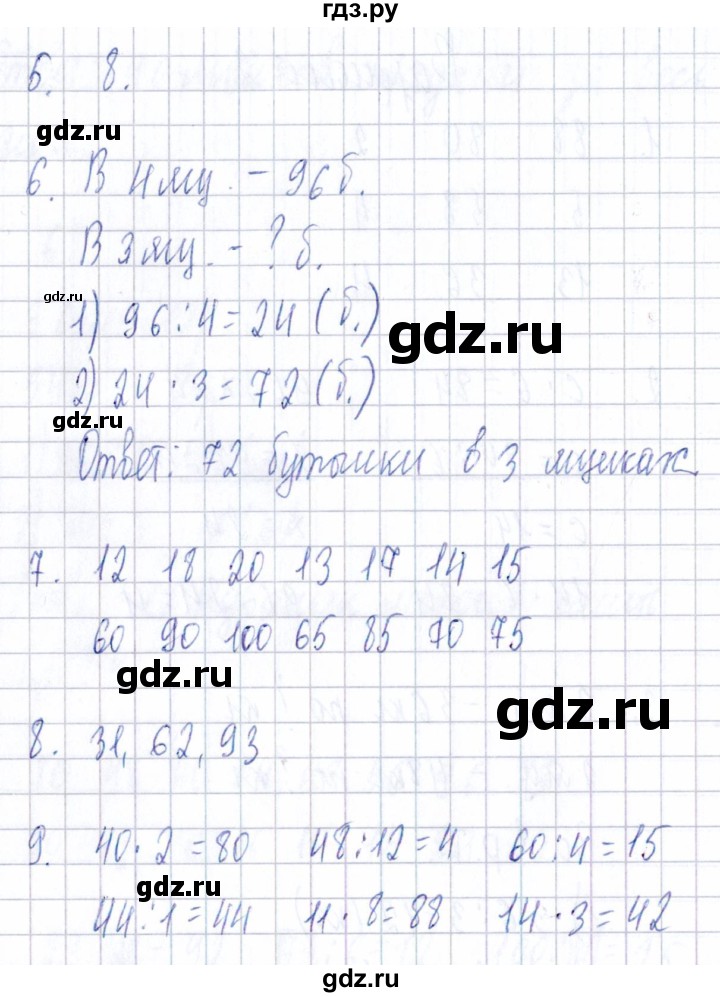 гдз.ру
5. 8.
gdz.ru
6. В 4 ящ. – 96 б.
В 3 ящ. – ? б.
gdz.ru
1) 96 : 4 = 24 (б.)
gdz.ru
2) 24 · 3 = 72 (б.)
gdz.ru
Ответ: 72 бутылки в 3 ящиках.
7. 12 18 20 13 17 14 15
60 90 100 65 85 70 75
gdz.ru
gdz.ru
8. 31, 62, 93
9. 40 · 2 = 80 48 : 12 = 4 60 : 4 = 15
gdz.ru
44 : 1 = 44 11 · 8 = 88 14 · 3 = 42
gdz.ru